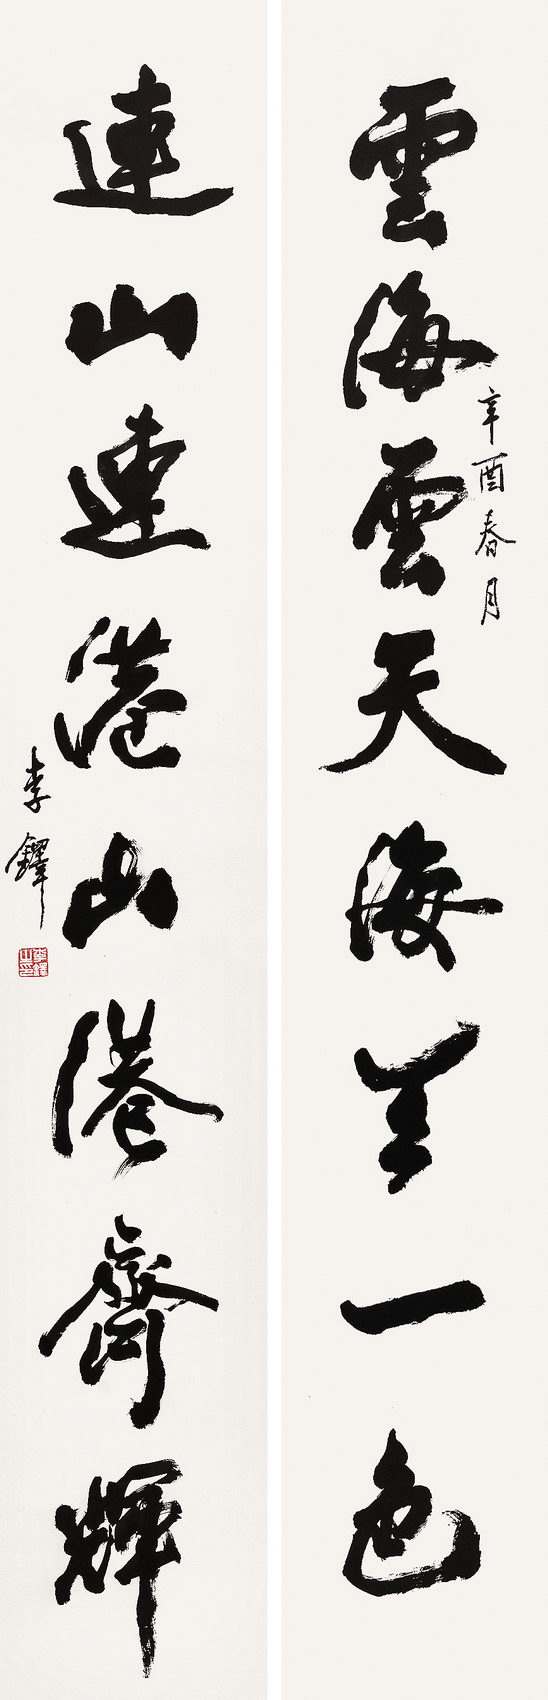 辛酉春月
雲海雲天海天一色
連山連港山港齊輝
李鐸
李鐸之印